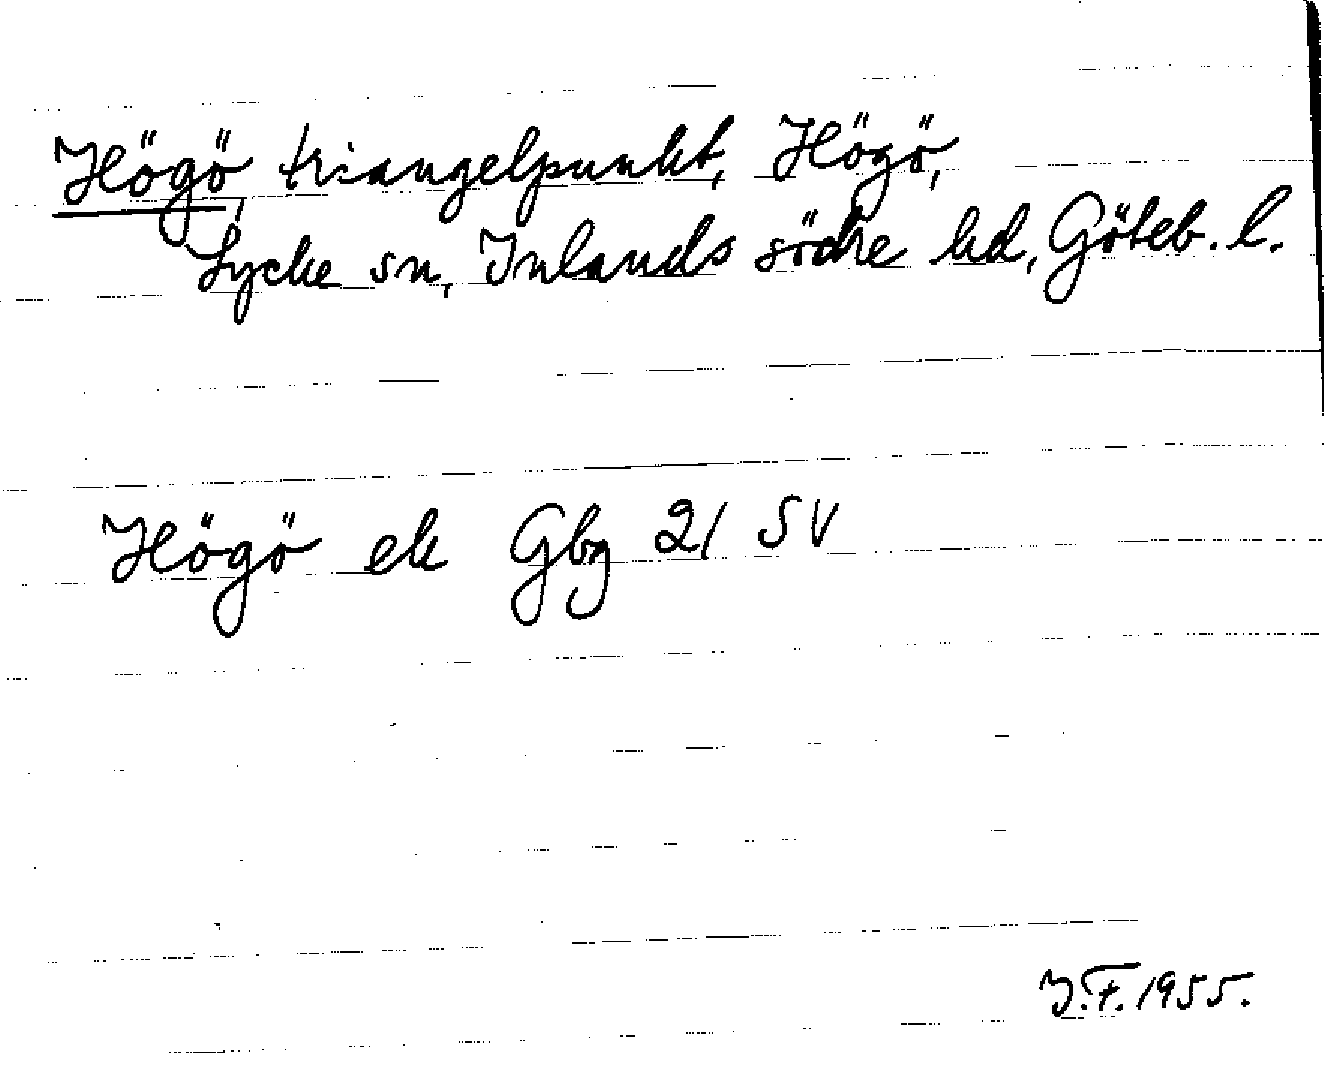 Högö, triangelpunkt, Högö,
Lycke sn, Inlands södre hd, Göteb. l.
Högö ek Gbg 21 SV
J.F. 1955.